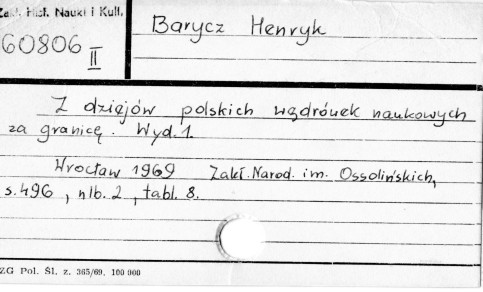 Zakł. Hist. Nauki i Kult.
60806
II
Barycz Henryk
Z dziejów polskich wędrówek naukowych
za granicę. Wyd. 1.
Wrocław 1969 Zakł. Narod. im. Ossolińskich,
s. 496, nlb. 2, tabl. 8.
ZG Pol. Śl. z. 365/69. 100 000